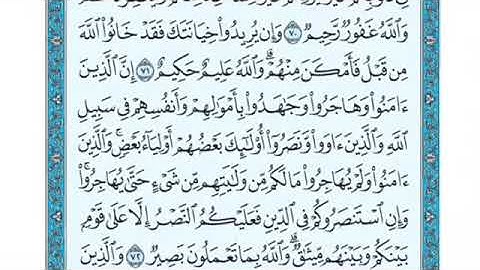 وَٱللَّهُ غَفُورٌ رَّحِيمٌ ٧٠ وَإِن يُرِيدُوا۟ خِيَانَتَكَ فَقَدْ خَانُوا۟ ٱللَّهَ
مِن قَبْلُ فَأَمْكَنَ مِنْهُمْ ۗ وَٱللَّهُ عَلِيمٌ حَكِيمٌ ٧١ إِنَّ ٱلَّذِينَ
ءَامَنُوا۟ وَهَاجَرُوا۟ وَجَٰهَدُوا۟ بِأَمْوَٰلِهِمْ وَأَنفُسِهِمْ فِى سَبِيلِ
ٱللَّهِ وَٱلَّذِينَ ءَاوَوا۟ وَّنَصَرُوٓا۟ أُو۟لَٰٓئِكَ بَعْضُهُمْ أَوْلِيَآءُ بَعْضٍ ۚ وَٱلَّذِينَ
ءَامَنُوا۟ وَلَمْ يُهَاجِرُوا۟ مَا لَكُم مِّن وَلَٰيَتِهِم مِّن شَىْءٍ حَتَّىٰ يُهَاجِرُوا۟ ۚ
وَإِنِ ٱسْتَنصَرُوكُمْ فِى ٱلدِّينِ فَعَلَيْكُمُ ٱلنَّصْرُ إِلَّا عَلَىٰ قَوْمٍۭ
بَيْنَكُمْ وَبَيْنَهُم مِّيثَٰقٌ ۗ وَٱللَّهُ بِمَا تَعْمَلُونَ بَصِيرٌ ٧٢ وَٱلَّذِينَ